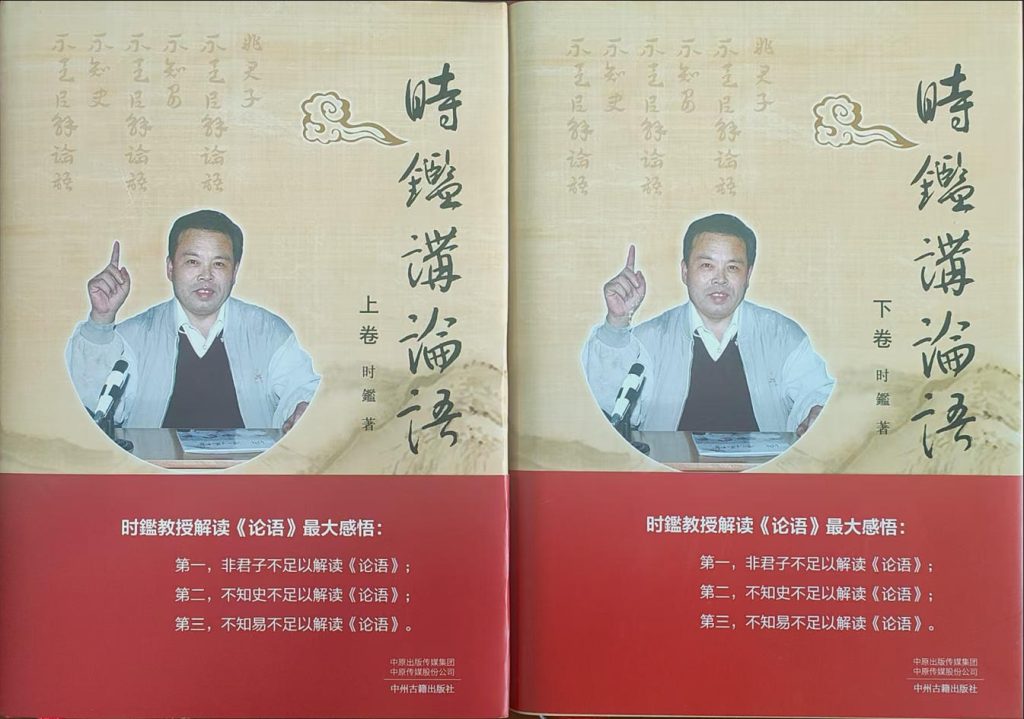 時鑑講論語
上卷
时鑑 著
非君子
不足以解論語
不知易
不足以解論語
不知史
不足以解論語
时鑑教授解读《论语》最大感悟：
第一，非君子不足以解读《论语》；
第二，不知史不足以解读《论语》；
第三，不知易不足以解读《论语》。
中原出版传媒集团
中原传媒股份公司
中州古籍出版社
時鑑講論語
下卷
时鑑 著
非君子
不足以解論語
不知易
不足以解論語
不知史
不足以解論語
时鑑教授解读《论语》最大感悟：
第一，非君子不足以解读《论语》；
第二，不知史不足以解读《论语》；
第三，不知易不足以解读《论语》。
中原出版传媒集团
中原传媒股份公司
中州古籍出版社